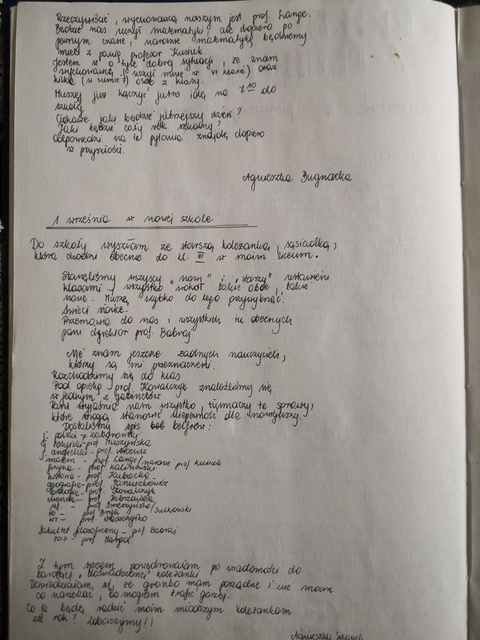 Rzeczywiście, wychowawcą naszym jest prof. Lange.
Będzie nas uczyć matematyki, ale dopiero po
pewnym czasie, narazie matematykę będziemy
mieli z panią profesor Kusiek.
Jestem w o tyle dobrej sytuacji, że znam
wychowawcę (uczył mnie w VI klasie) oraz
kilka (w sumie 7) osób z klasy.
Muszę już kończyć jutro idę na 7³⁰ do
szkoły.
Ciekawe jaki będzie jutrzejszy dzień?
Jaki będzie cały rok szkolny?
Odpowiedzi na te pytania znajdę dopiero
w przyszłości.
Agnieszka Bugnacka
1 września w nowej szkole
Do szkoły wyszłam ze starszą koleżanką, sąsiadką,
która chodzi obecnie do kl. III w moim liceum.
Stanęliśmy wszyscy "nowi" i "starzy" ustawieni
klasami, wszystko wokół takie obce, takie
nowe. Muszę szybko do tego przywyknąć.
Świeci słońce.
Przemawia do nas i wszystkich tu obecnych
pani dyrektor prof. Babraj
Nie znam jeszcze żadnych nauczycieli,
którzy są mi przeznaczeni.
Rozchodzimy się do klas
Pod opieką prof. Kowalczyk znaleźliśmy się
w jednym z gabinetów
Pani wyjaśnia nam wszystko, tłumaczy te sprawy,
które mogą stanowić niepewność dla nowicjuszy.
Dostaliśmy spis belfrów:
j. polski - p.
j. rosyjski - prof.
j. angielski - prof.
matem. - prof. Lange / narazie prof Kusiek
fizyka - prof.
historia - prof. Kubacka
geografia - prof.
prof. Kowalczyk
chemia - prof.
wf. - prof.
po - prof / Sułkowski
wt - prof
fakultet filozoficzny - prof Babraj
prof
Z tym spisem powędrowałam po wiadomości do
bardziej doświadczonej koleżanki
Dowiedziałam się, że grono mam porządne i nie mam
co narzekać, bo mogłam trafić gorzej.
Co ja będę radzić moim młodszym koleżankom
za rok? Zobaczymy!!
Agnieszka